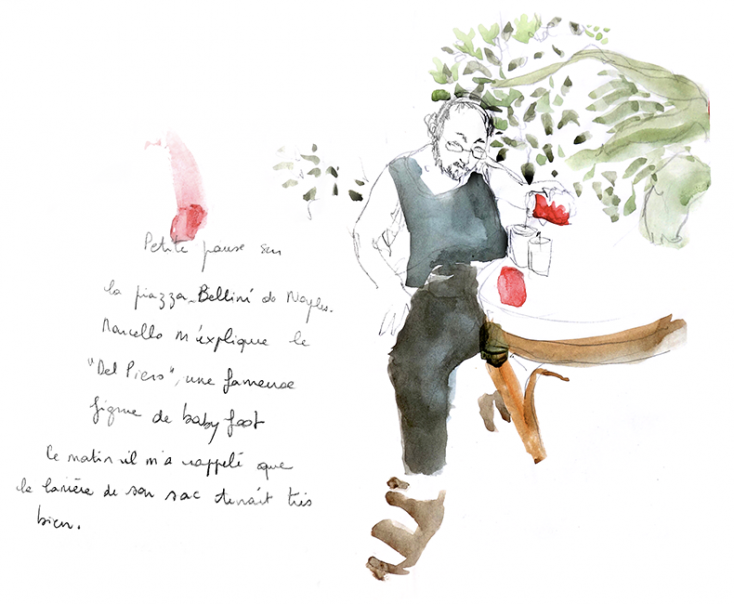 Petite pause sur
la piazza Bellini de Naples.
Marcello m'explique le
"Del Piero", une fameuse
figure de baby foot
le matin il m'a rappelé que
la lanière de son sac tenait très
bien.